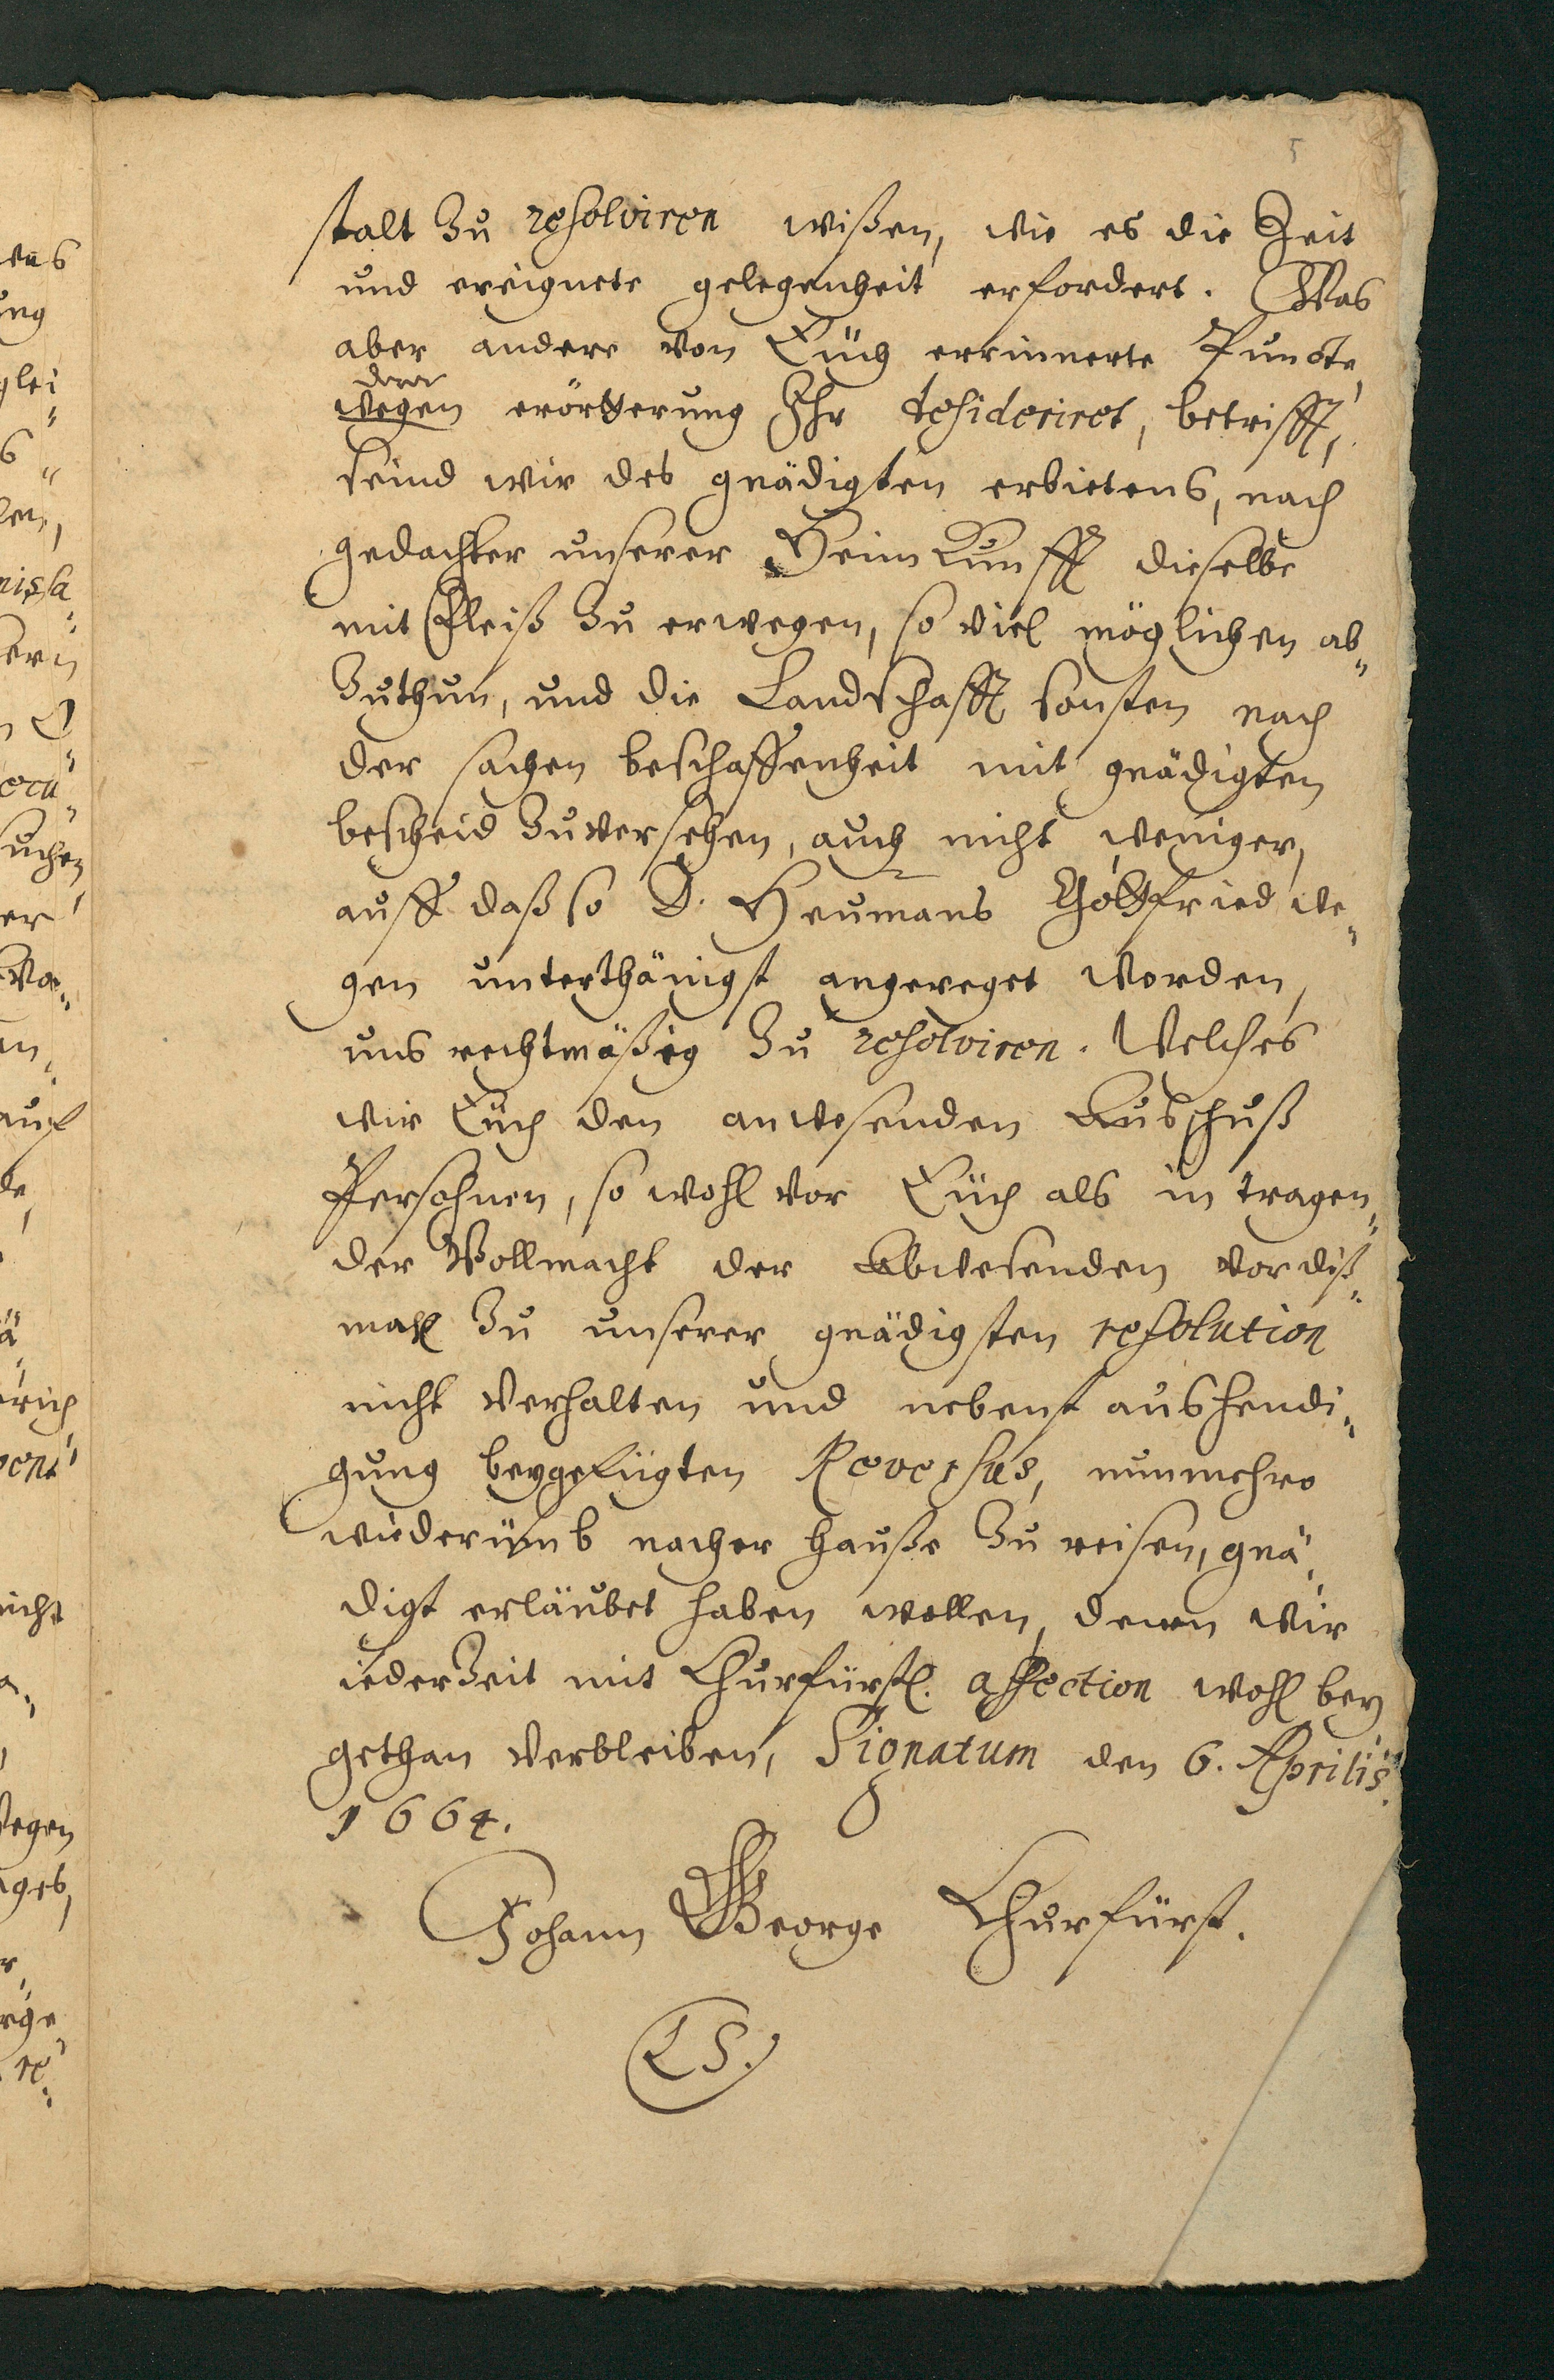 5
stalt zu resolviren wißen, wie es die Zeit
und ereignete gelegenheit erfordert. Was
aber andere von Euch erinnerte Puncte,
derer
wegen erörterung Ihr desideriret, betrifft,
seind wir des gnädigsten erbietens, nach
gedachter unserer Heimkunfft dieselbe
mit Fleiß zu erwegen, so viel möglichen ab„
zuthun, und die Landschafft sonsten nach
der sachen beschaffenheit mit gnädigsten
bescheid zuversehen, auch nicht weniger,
auff daß so D. Heumans Gottfried we„
gen unterthänigst angereget worden,
uns rechtmäßig zu resolviren. Welches
wir Euch den anwesenden Ausschuß
Persohnen, so wohl vor Euch als in tragen„
der Vollmacht der Abwesenden vordiß„
mahl zu unserer gnädigsten resolution
nicht verhalten und nebenst aushendi„
gung beygefügten Reversus, nunmehro
wiederümb nacher hauße zu reisen, gnä„
digst erläubet haben wollen, denen wir
iederzeit mit Churfürstl. affection wohl bey
gethan verbleiben, Signatum den 6. Aprilis.
1664.
Johann George Churfürst.
LS.